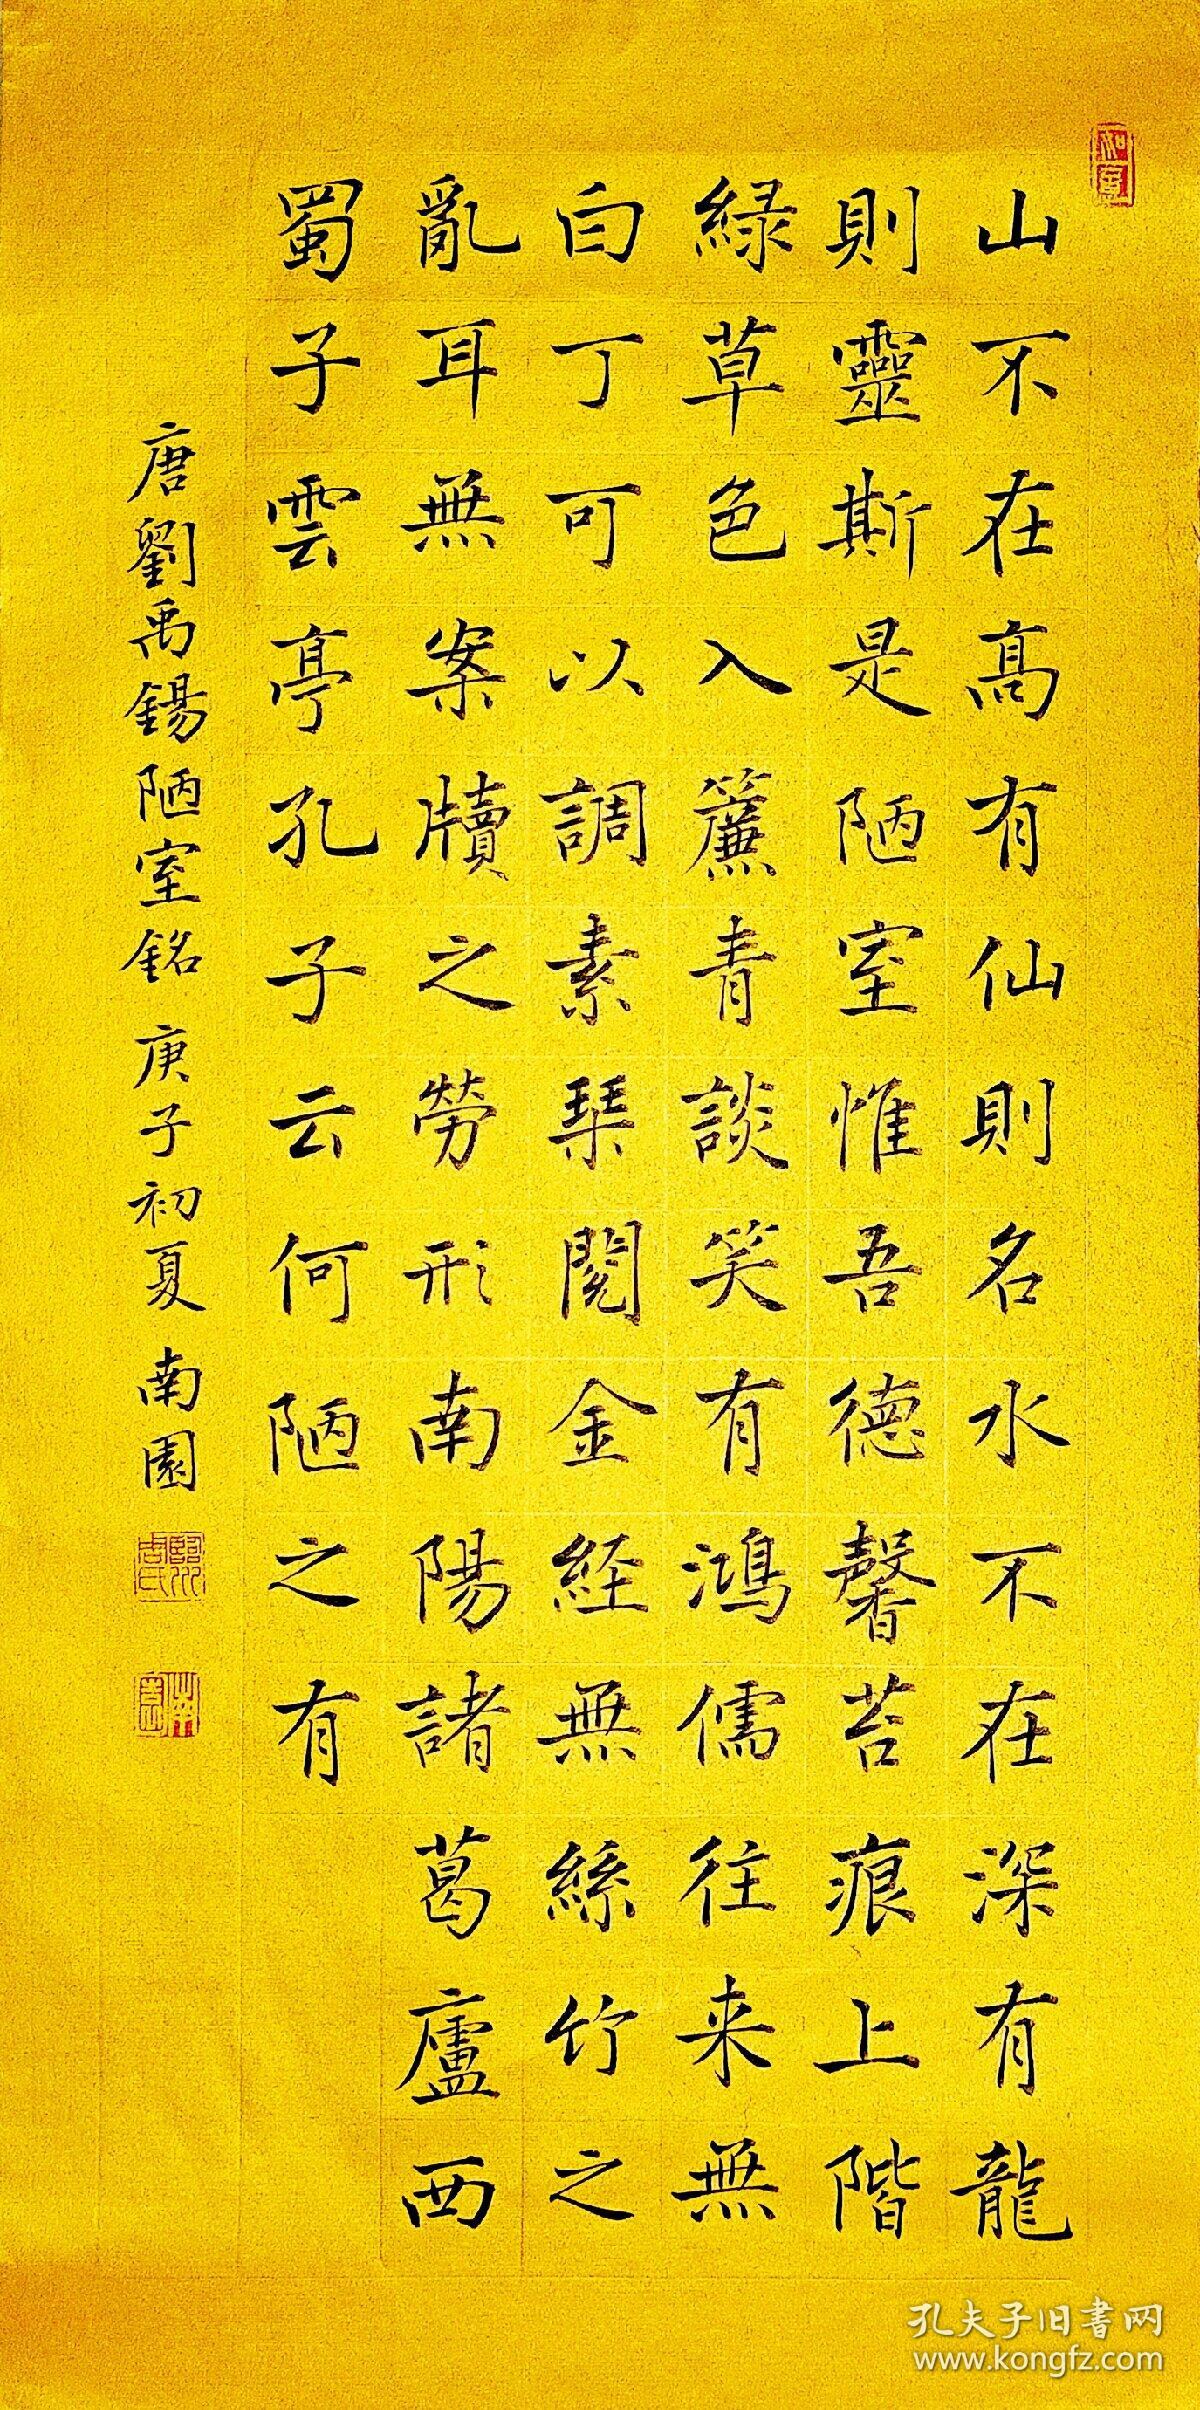 如意
山不在髙有仙則名水不在深有龍
則靈斯是陋室惟吾德馨苔痕上階
緑草色入簾青談笑有鴻儒往来無
白丁可以調素琴閱金経無絲竹之
亂耳無案牘之勞形南陽諸葛廬西
蜀子雲亭孔子云何陋之有
唐劉禹錫陋室銘 庚子初夏 南園
南園
孔夫子旧書网
www.kongfz.com